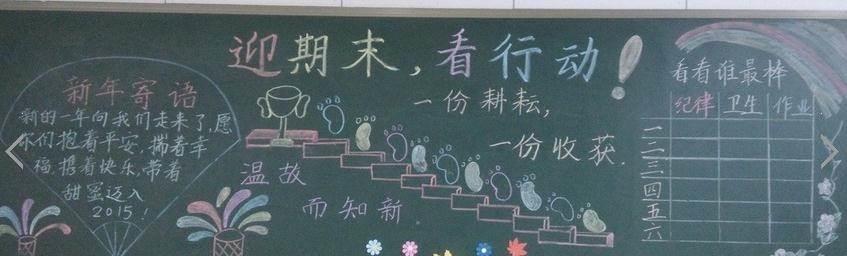 迎期末，看行动！
新年寄语
新的一年向我们走来了，愿
你们抱着平安，揣着幸
福，携着快乐，带着
甜蜜迈入
2015！
一份耕耘，
一份收获.
温故
而知新
看看谁最棒
纪律 卫生 作业
一
二
三
四
五
六